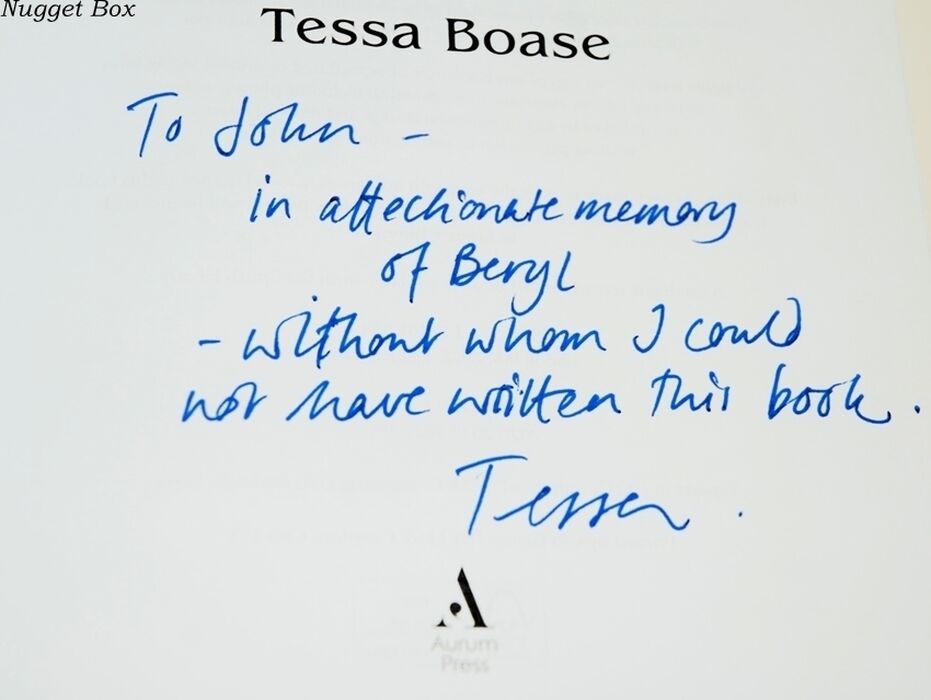 Nugget Box
Tessa Boase
To John -
in affectionate memory
of Beryl
- without whom I could
not have written this book.
Tessa.
A
Aurum
Press